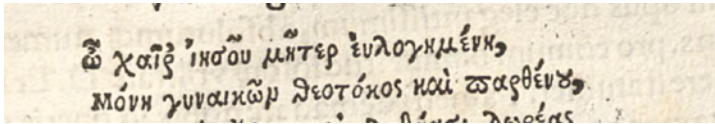 ὦ χαῖρ' ἰησοῦ μῆτερ εὐλογημένη,
Μόνη γυναικῶν θεοτόκος καὶ παρθένος,